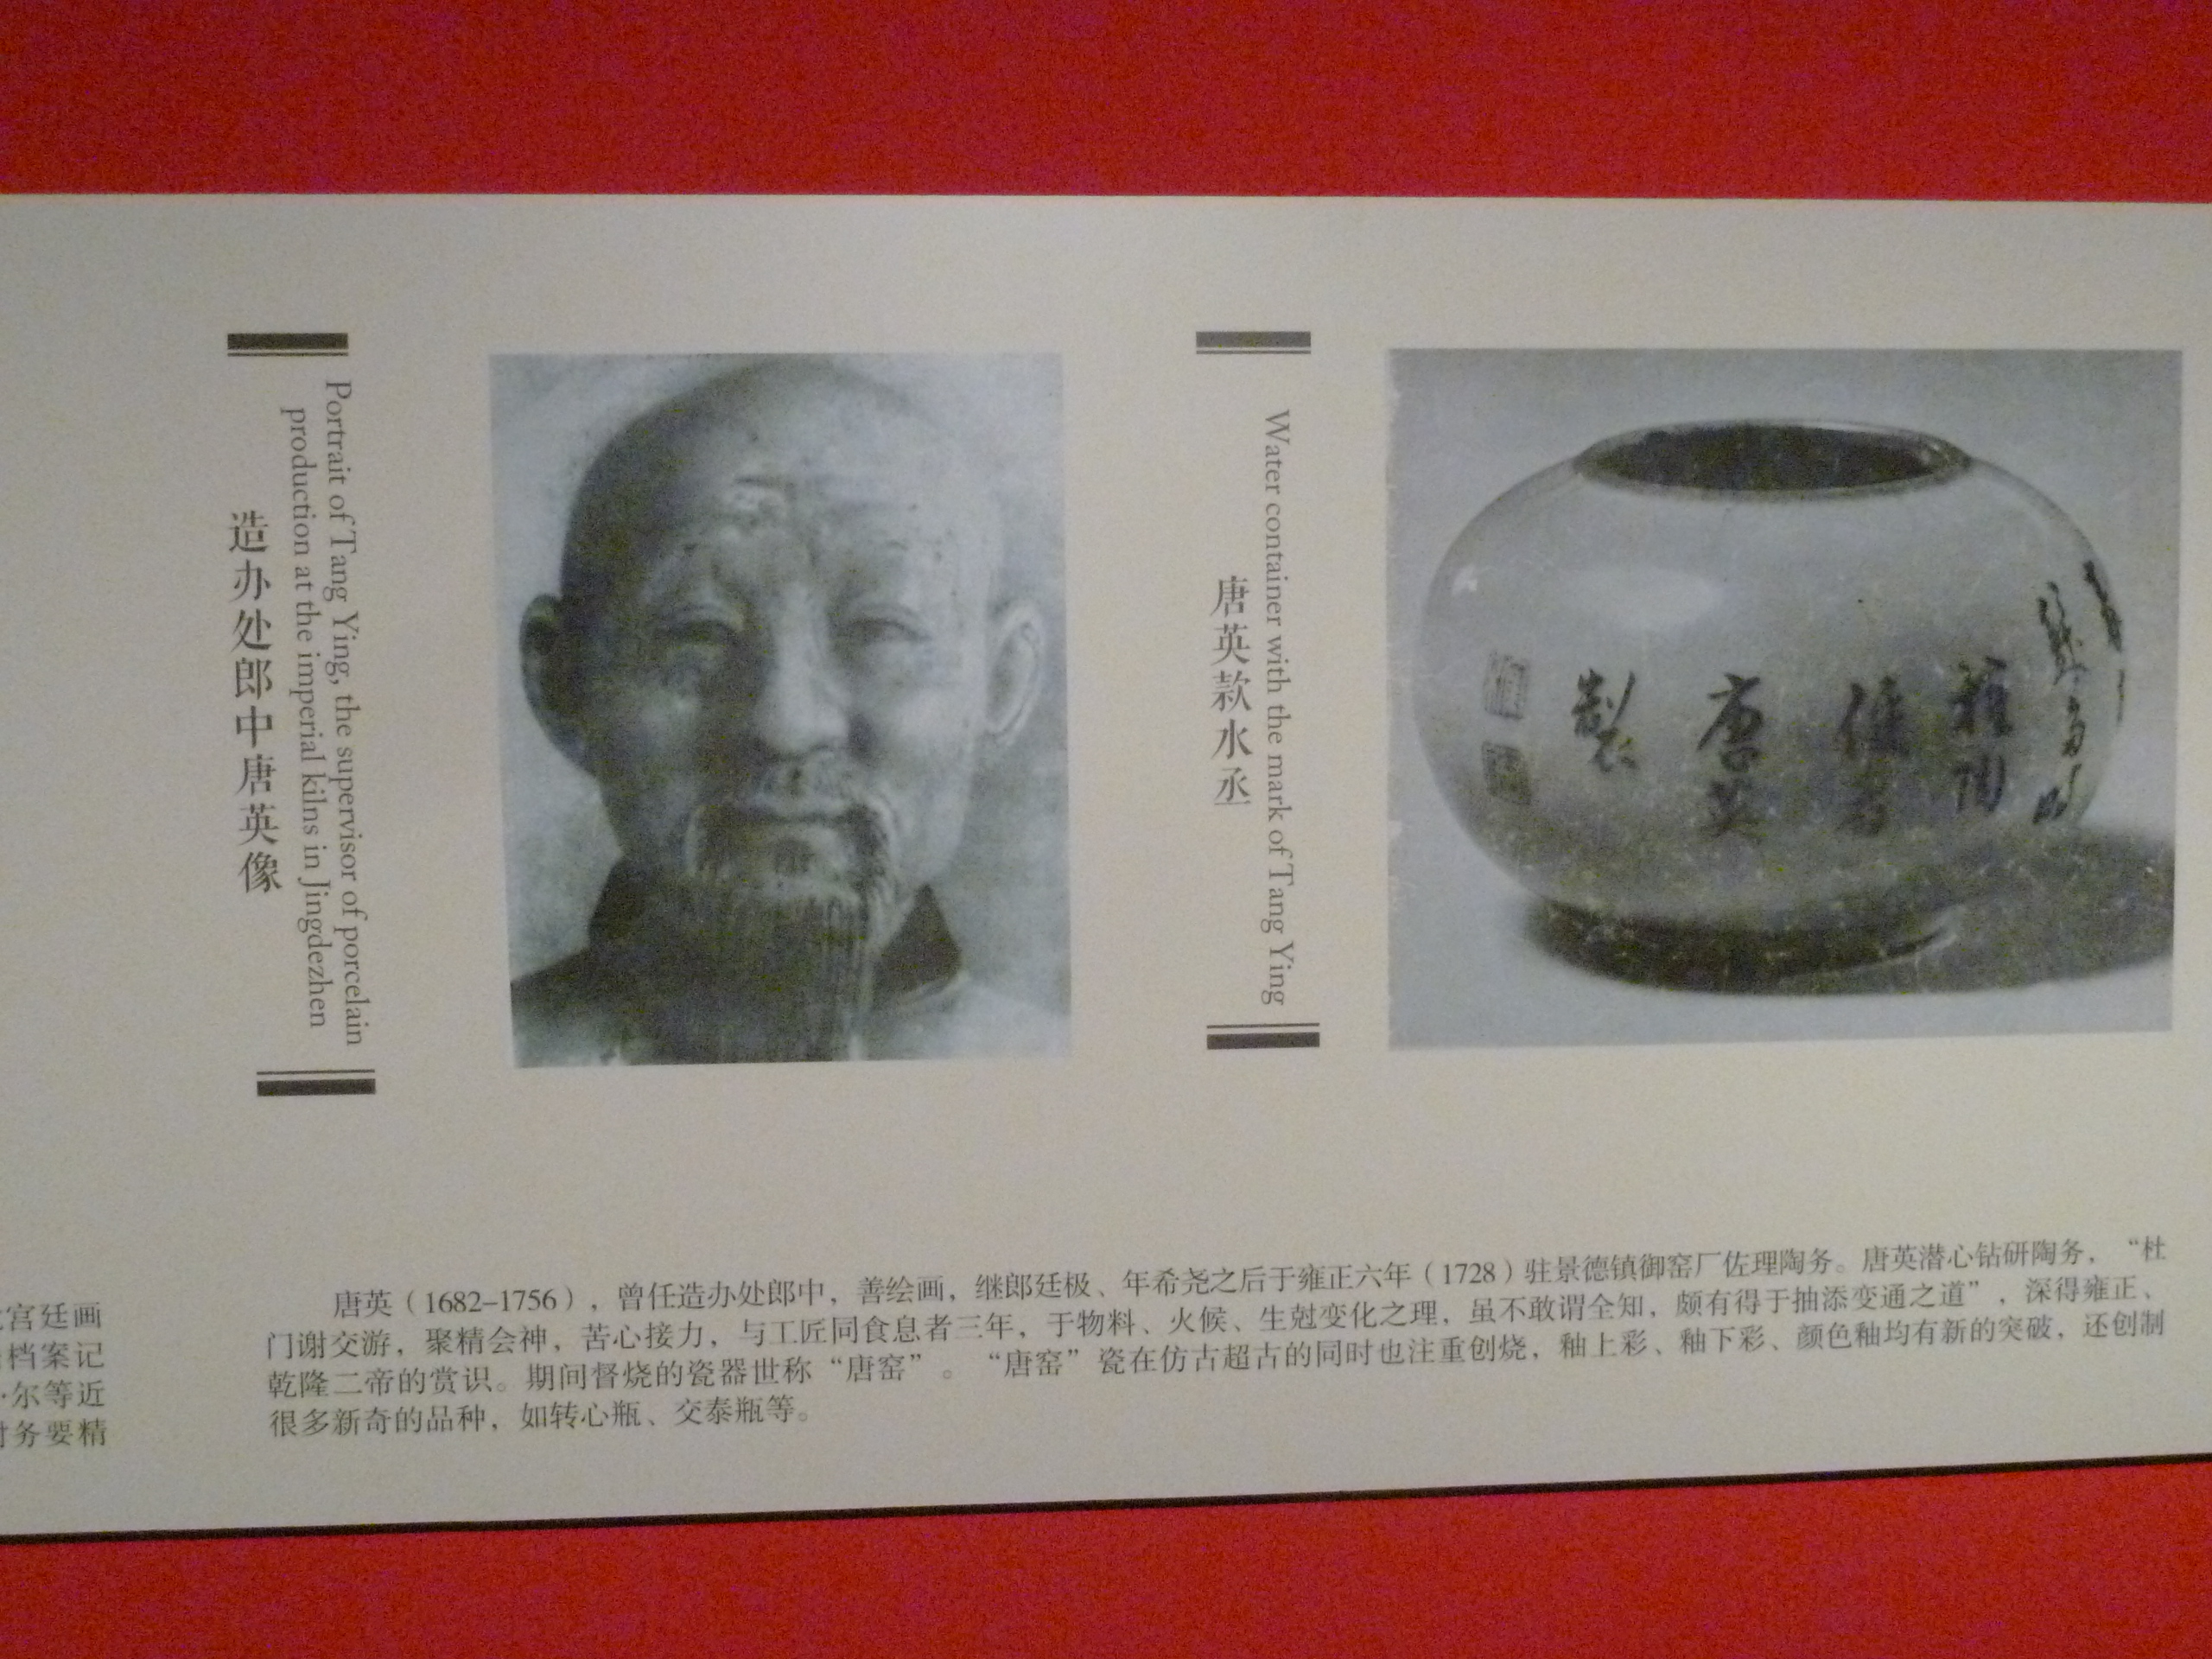 Portrait of Tang Ying, the supervisor of porcelain
production at the imperial kilns in Jingdezhen
造办处郎中唐英像
Water container with the mark of Tang Ying
唐英款水丞
榷陶
使者
唐英
製
唐英（1682–1756），曾任造办处郎中，善绘画，继郎廷极、年希尧之后于雍正六年（1728）驻景德镇御窑厂佐理陶务。唐英潜心钻研陶务，“杜
门谢交游，聚精会神，苦心接力，与工匠同食息者三年，于物料、火候、生尅变化之理，虽不敢谓全知，颇有得于抽添变通之道”，深得雍正、
乾隆二帝的赏识。期间督烧的瓷器世称“唐窑”。“唐窑”瓷在仿古超古的同时也注重创烧，釉上彩、釉下彩、颜色釉均有新的突破，还创制
很多新奇的品种，如转心瓶、交泰瓶等。
宫廷画
档案记
尔等近
务要精